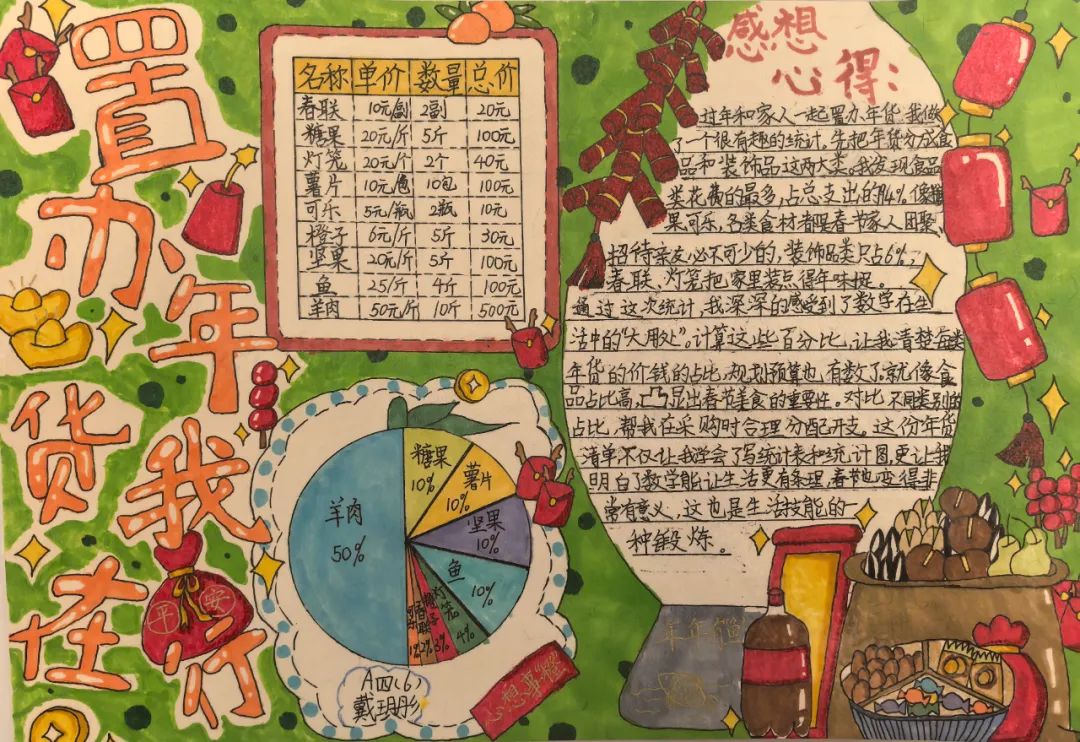 置办年货我在行
平安
名称 单价 数量 总价
春联 10元/副 2副 20元
糖果 20元/斤 5斤 100元
灯笼 20元/个 2个 40元
薯片 10元/包 10包 100元
可乐 5元/瓶 2瓶 10元
橙子 6元/斤 5斤 30元
坚果 20元/斤 5斤 100元
鱼 25/斤 4斤 100元
羊肉 50元/斤 10斤 500元
羊肉 50%
糖果 10%
薯片 10%
坚果 10%
鱼 10%
灯笼 4%
橙子 3%
春联 2%
可乐 1%
A四(6)
戴玥彤
心想事"橙"
感想
心得:
过年和家人一起置办年货,我做
了一个很有趣的统计。先把年货分成食
品和装饰品这两大类。我发现食品
类花费的最多,占总支出的94%像糖
果可乐,各类食材都是春节家人团聚、
招待亲友必不可少的,装饰品类只占6%;
春联、灯笼把家里装点得年味
通过这次统计,我深深的感受到了数学在生
活中的"大用处"。计算这些百分比,让我清楚每类
年货的价钱的占比,规划预算也有数了。就像食
品占比高,凸显出春节美食的重要性。对比不同类别的
占比,帮我在采购时合理分配开支。这份年货
清单不仅让我学会了写统计表和统计图更让我
明白了数学能让生活更有条理,春节也变得非
常有意义,这也是生活技能的一
种锻炼。
年年有鱼